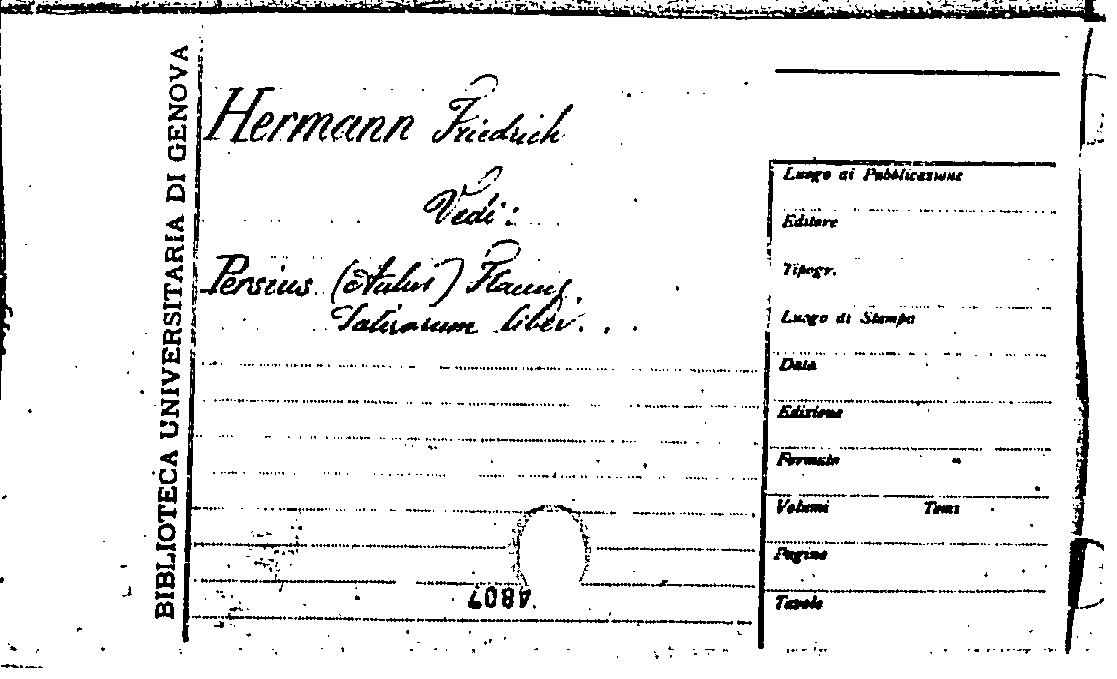 BIBLIOTECA UNIVERSITARIA DI GENOVA
Hermann Friedrich
Vedi:
Persius (Aulus) Flaccus.
Satirarum liber. . .
Luogo di Pubblicazione
Editore
Tipogr.
Luogo di Stampa
Data
Edizione
Formato
Volumi Tomi
Pagine
Tavole
4807